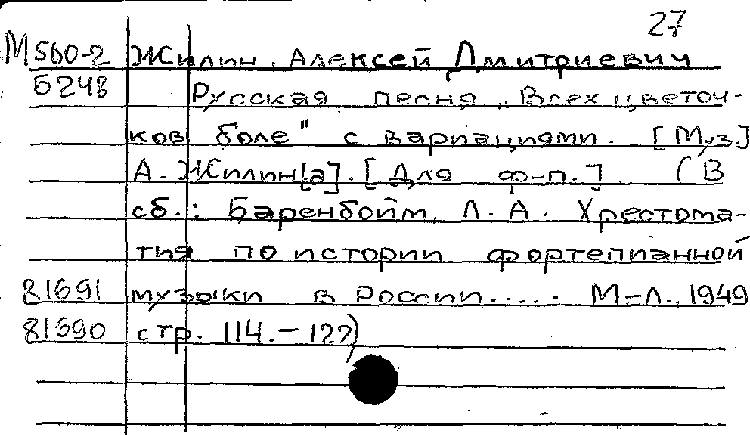 27
М 560-2 Жилин, Алексей Дмитриевич
6248 Русская песня „Всех цветоч-
ков боле" с вариациями. [Муз.]
А. Жилин[а]. [Для ф-п.] (В
сб.: Баренбойм, Л. А. Хрестома-
тия по истории фортепианной
81691 музыки в России..... М-Л., 1949
81690 стр. 114.-122)